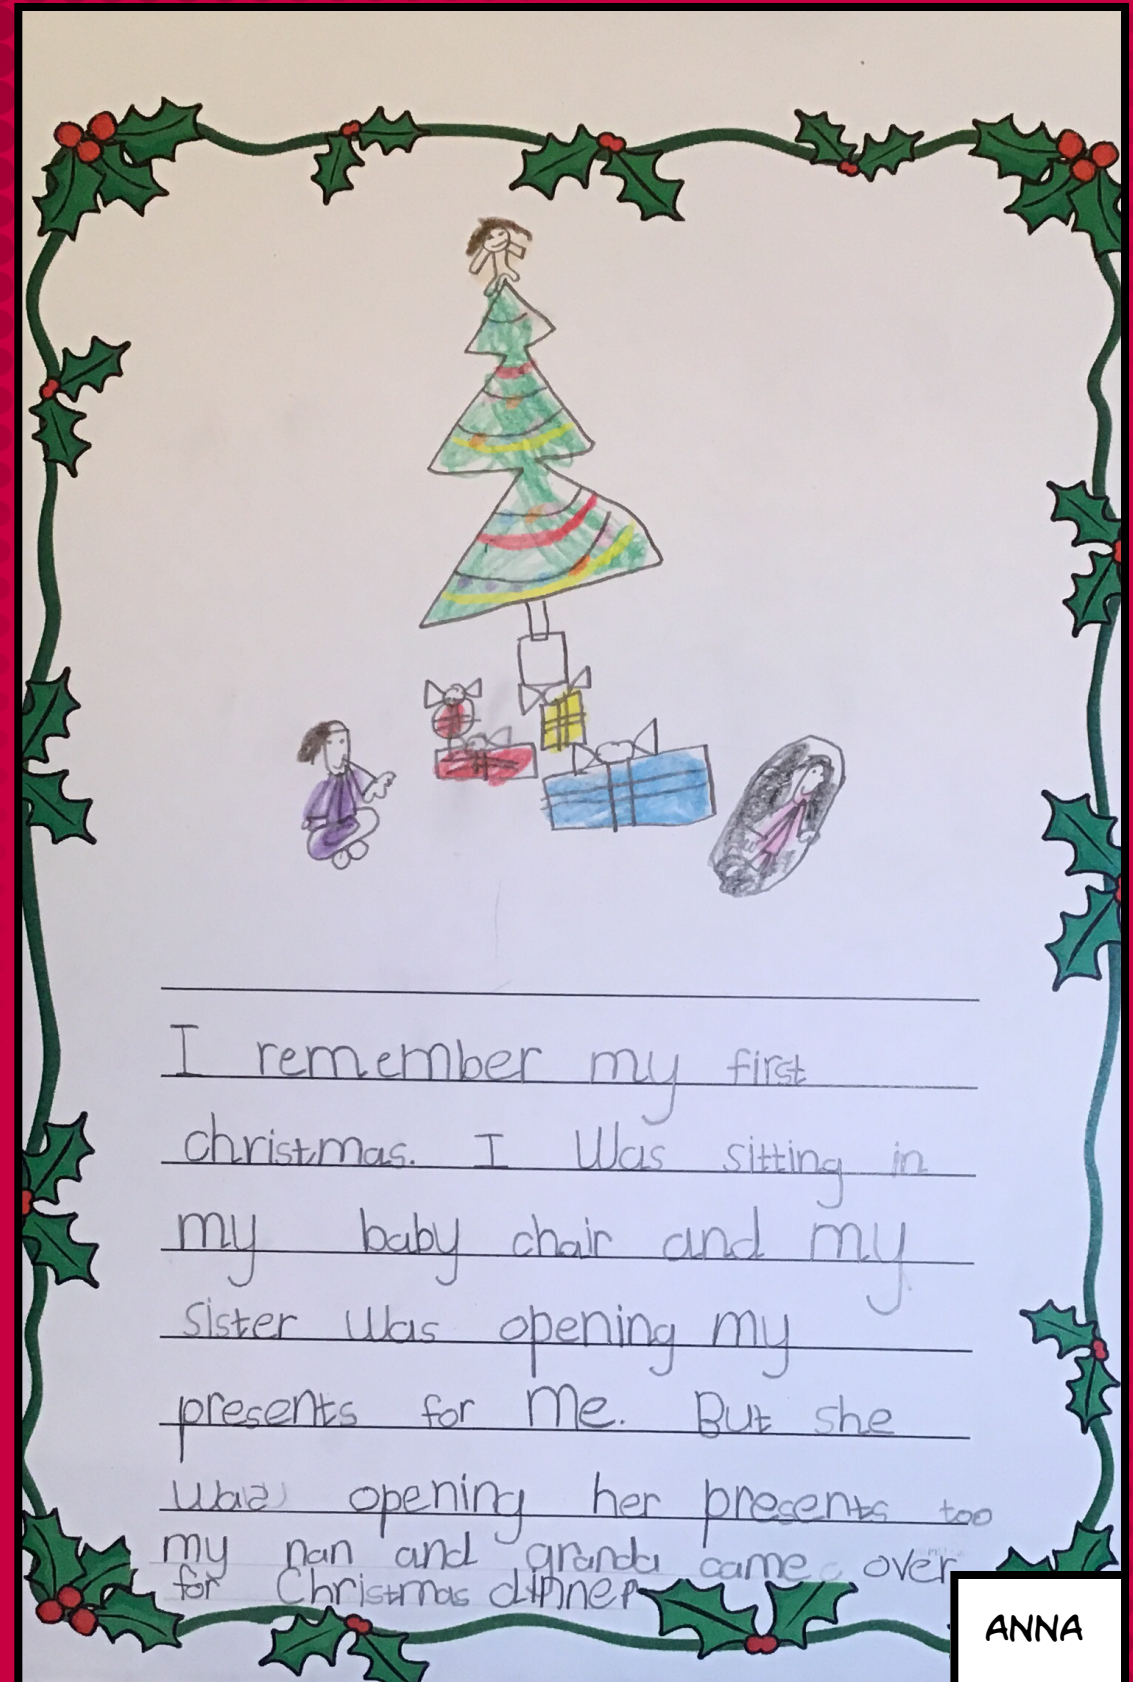 I remember my first
christmas. I was sitting in
my baby chair and my
sister was opening my
presents for me. But she
was opening her presents too
my nan and granda came over
for Christmas dinner
ANNA